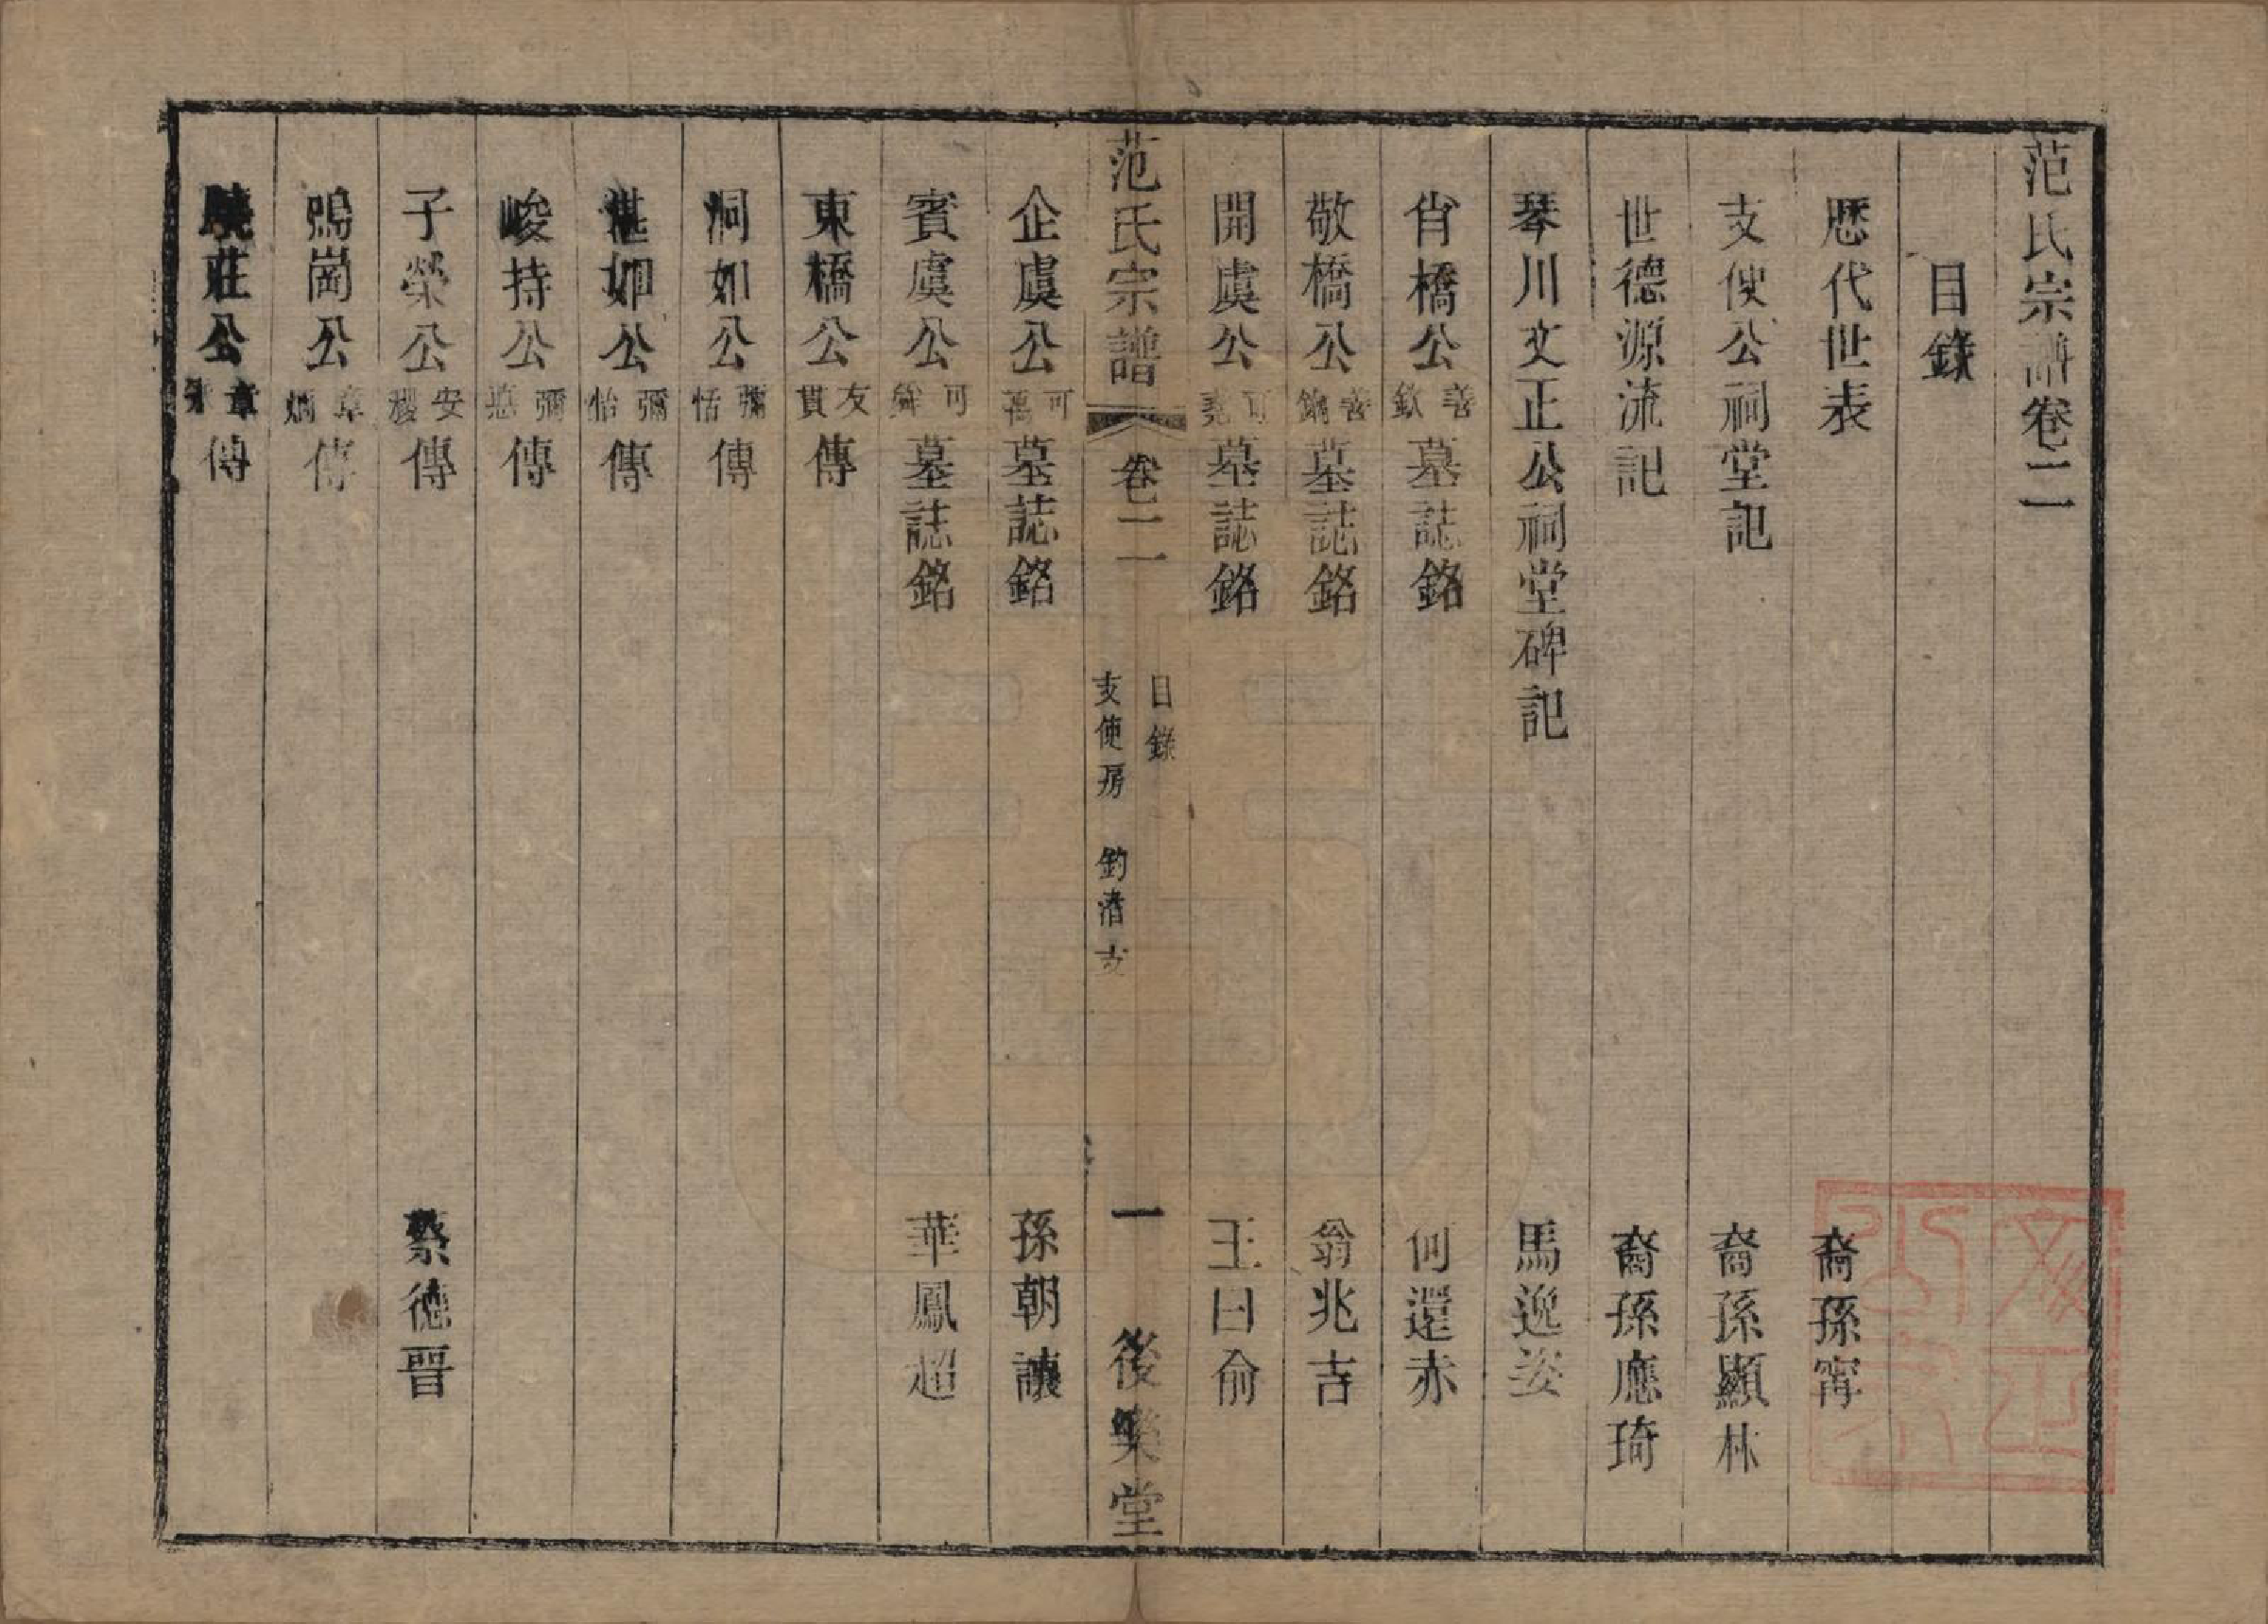 范氏宗譜卷二
目錄
歷代世表 裔孫甯
支使公祠堂記 裔孫顯林
世德源流記 裔孫應琦
琴川文正公祠堂碑記 馬逸姿
肖橋公善欽墓誌銘 何還赤
敬橋公善墓誌銘 翁兆吉
開虞公可墓誌銘 王曰俞
范氏宗譜 卷二 目錄 支使房 釣渚支 一 後樂堂
企虞公可萬墓誌銘 孫朝讓
賓虞公可墓誌銘 華鳳超
東橋公友貫傳
洞如公彌恬傳
湛如公彌怡傳
峻持公彌傳
子榮公安穩傳 蔡德晉
鳴崗公章烱傳
曉莊公章傳